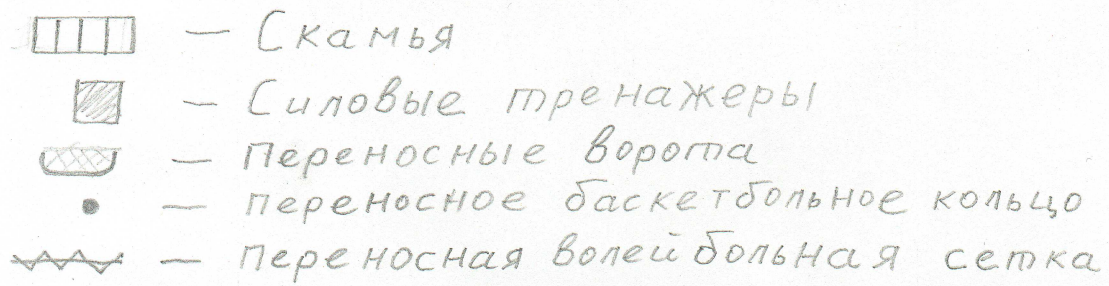 — Скамья
— Силовые тренажеры
— переносные ворота
— переносное баскетбольное кольцо
— переносная волейбольная сетка